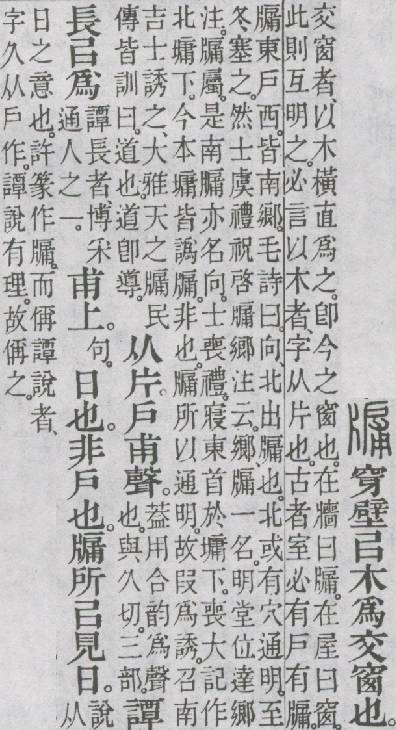 牖穿壁㠯木爲交窗也。
交窗者、以木橫直爲之。卽今之窗也。在牆曰牖。在屋曰窗。
此則互明之。必言以木者、字从片也。古者室必有戶有牖。
牖東戶西。皆南鄉。毛詩曰。向、北出牖也。北或有穴通明。至
冬塞之。然士虞禮祝啓牖鄉注云。鄉、牖一名。明堂位達鄉
注。牖屬。是南牖亦名向。士喪禮。寢東首於墉下。喪大記作
北墉下。今本墉皆譌牖。非也。牖所以通明。故叚爲誘。召南
吉士誘之、大雅天之牖民
傳皆訓曰。道也。道卽導。
从片戶甫聲。
葢用合韵爲聲
也。與久切。三部。
譚
長㠯爲
譚長者、博采
通人之一。
甫上。
句。
日也。非戶也。牖所㠯見日。
說
从
日之意也。許篆作牖。而偁譚說者、
字久从戶作。譚說有理。故偁之。